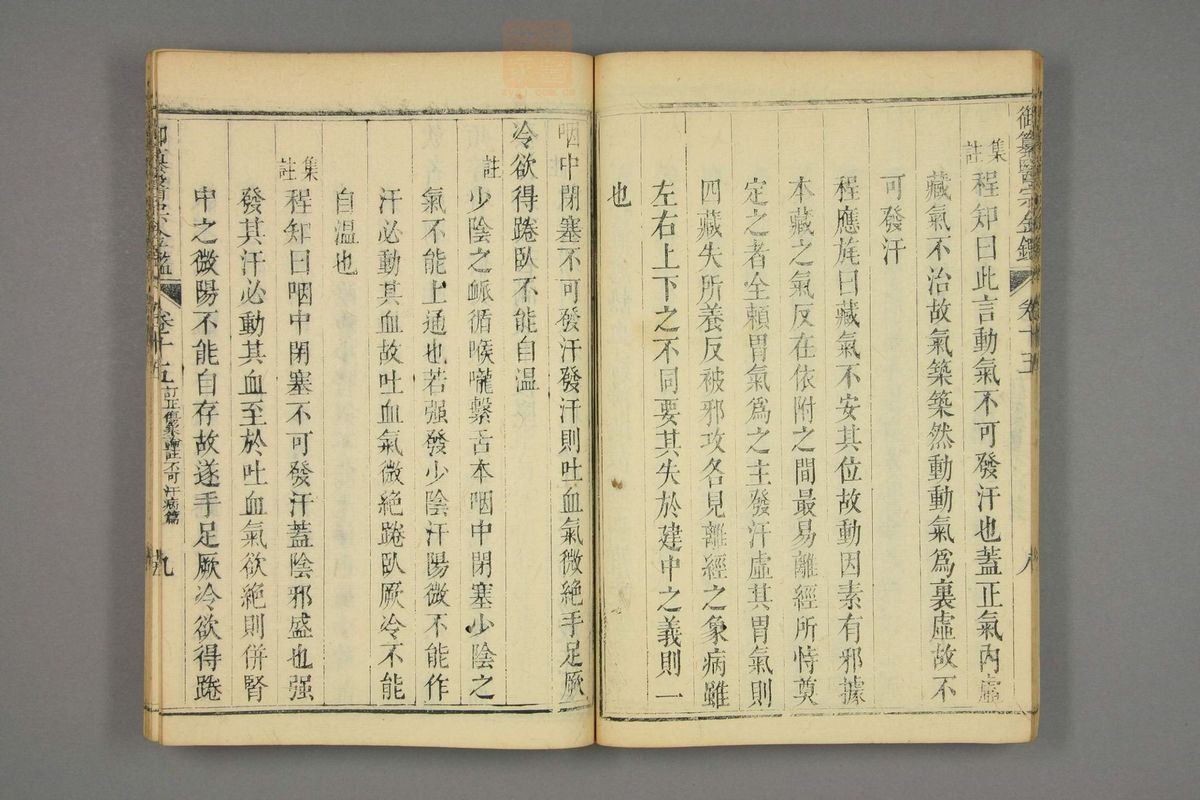 御纂醫宗金鑑 卷十五 八
集註
程知曰此言動氣不可發汗也蓋正氣內虛
藏氣不治故氣築築然動動氣爲裏虛故不
可發汗
程應旄曰藏氣不安其位故動因素有邪據
本藏之氣反在依附之間最易離經所恃奠
定之者全賴胃氣爲之主發汗虛其胃氣則
四藏失所養反被邪攻各見離經之象病雖
左右上下之不同要其失於建中之義則一
也
咽中閉塞不可發汗發汗則吐血氣微絶手足厥
冷欲得踡臥不能自溫
註
少陰之脈循喉嚨繫舌本咽中閉塞少陰之
氣不能上通也若强發少陰汗陽微不能作
汗必動其血故吐血氣微絶踡臥厥冷不能
自溫也
集註
程知曰咽中閉塞不可發汗蓋陰邪盛也强
發其汗必動其血至於吐血氣欲絶則併腎
中之微陽不能自存故遂手足厥冷欲得踡
御纂醫宗金鑑 卷十五 訂正傷寒論註不可汗病篇 九